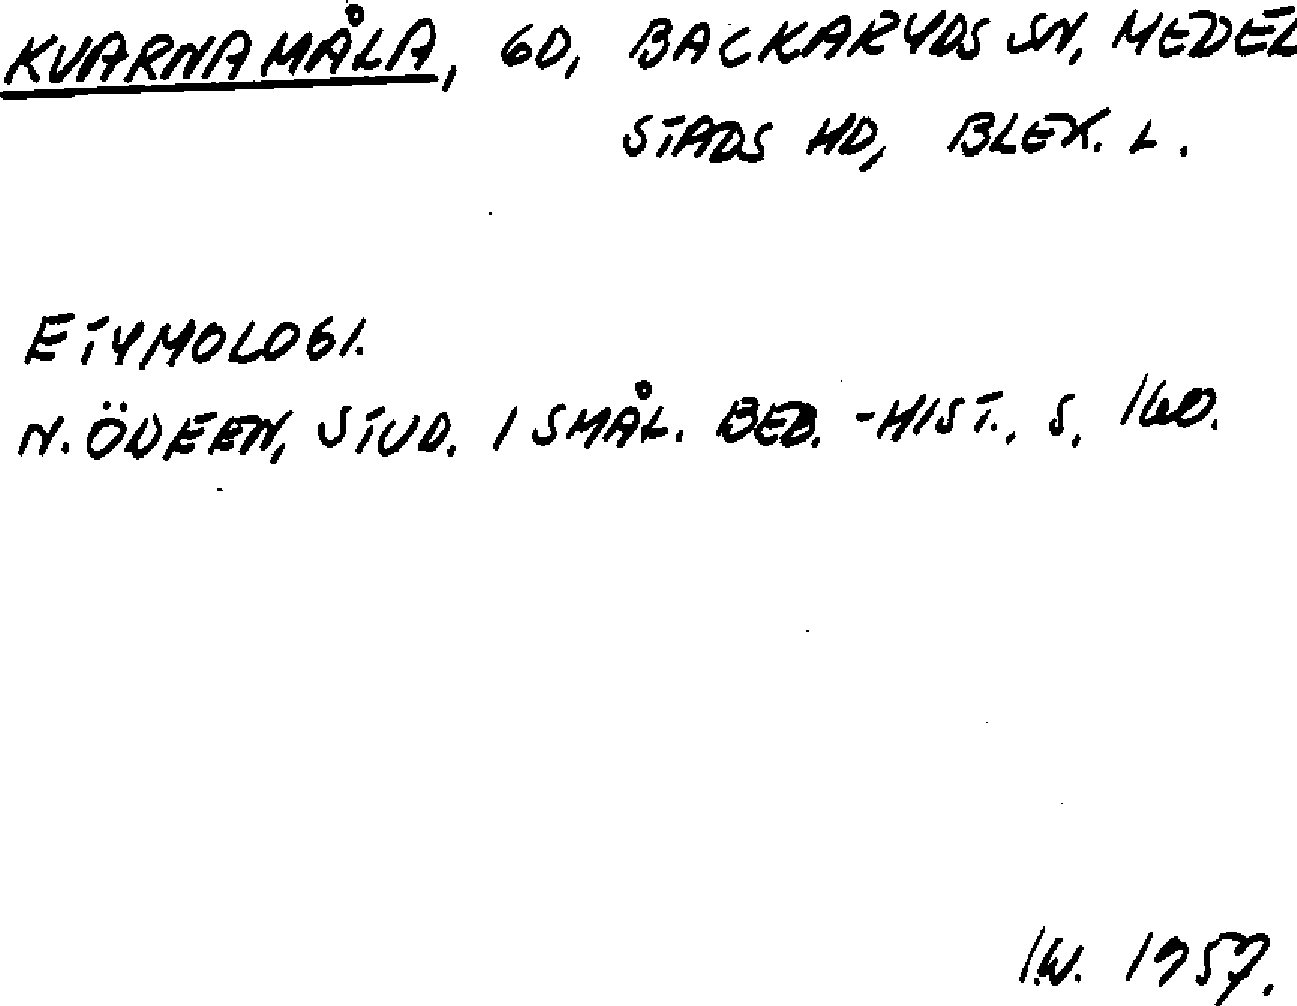 KVARNAMÅLA, GD, BACKARYDS SN, MEDEL
STADS HD, BLEK. L.
ETYMOLOGI.
N. ÖDEEN, STUD. I SMÅL. BEB.-HIST., S. 160.
I.W. 1957.